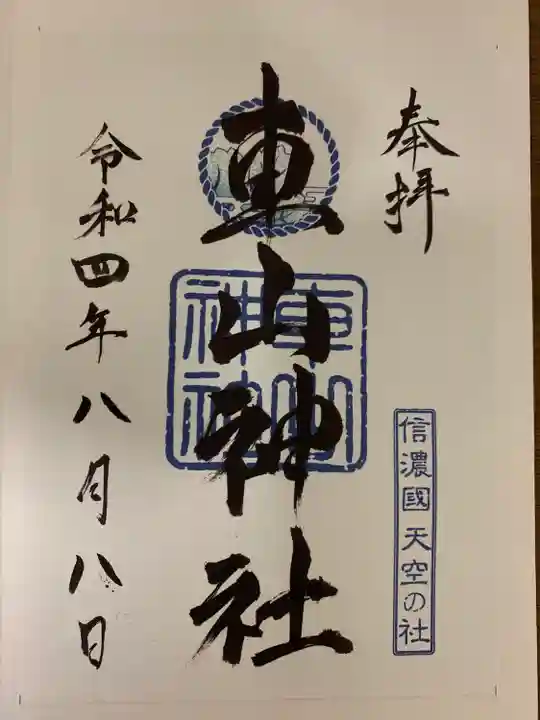 奉拝
信濃國 天空の社
車山神社
車山
神社
令和四年八月八日